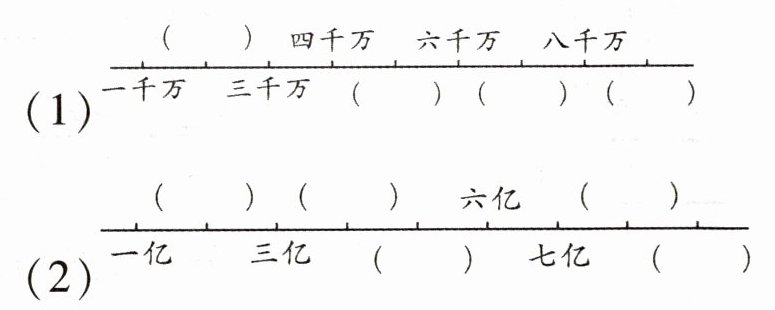 (      ) 四千万 六千万 八千万
(1) 一千万 三千万 (      ) (      ) (      )
(      ) (      ) 六亿 (      )
(2) 一亿 三亿 (      ) 七亿 (      )